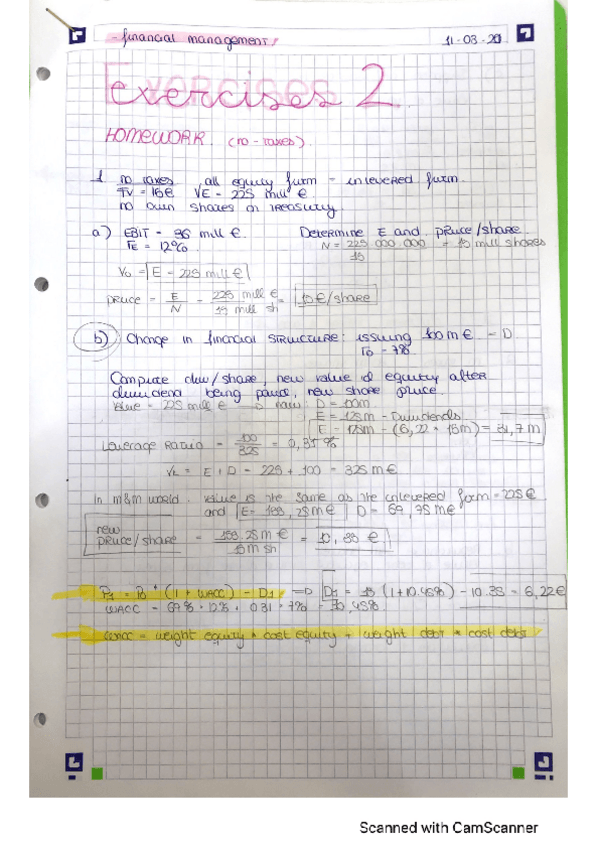 - financial management/ 11-03-20
Exercises 2
HOMEWORK. (no-taxes).
1 no taxes all equity firm = unlevered firm.
TV = 16€ VE = 225 mill €
no own shares in treasury.
a) EBIT = 36 mill €. Determine E and price/share.
rE = 12% N = 225 000 000 = 15 mill shares
15
V0 = E = 225 mill €
price = E = 225 mill € = 15€/share
N 15 mill sh
b) Change in financial structure: issuing 100m € = D
rD = 7%
Compute div/share, new value of equity after
dividend being paid, new share price.
Value = 225 mill € now: D = 100m
E = 125m - Dividends
E = 125m - (6,22 * 15m) = 31,7 m
Leverage Ratio = 100 = 0,31 %
325
VL = E + D = 225 + 100 = 325 m €
In m&m world. Value is the same as the unlevered firm = 225 €
and E = 155,25 m € D = 69,75 m €
new
price/share = 155.25 m € = 10,35 €
15 m sh
P1 = P0 * (1 + WACC) - D1 D1 = 15 (1+10.45%) - 10.35 = 6,22 €
WACC = 69% * 12% + 0.31 * 7% = 10,45%
WACC = weight equity * cost equity + weight debt * cost debt
Scanned with CamScanner